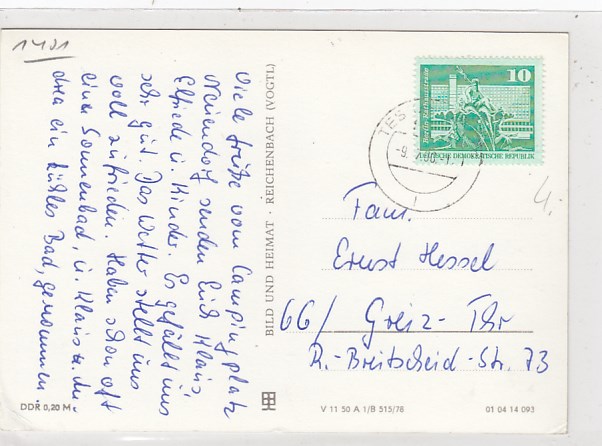 1401
Viele Grüße vom Campingplatz
Neuendorf senden Euch Klaus,
Elfriede u. Kinder. Es gefällt uns
sehr gut. Das Wetter stellt uns
voll zufrieden. Haben schon oft
einen Sonnenbad, u. Klaus u. An-
drea ein kühles Bad, genommen
DDR 0,20 M
BILD UND HEIMAT · REICHENBACH (VOGTL)
10
Berlin-Rathausstrasse
DEUTSCHE DEMOKRATISCHE REPUBLIK
TES
-9.
4.-
Fam.
Ernst Hessel
66/ Greiz-Thr
R.-Breitscheid-Str. 73
V 11 50 A 1/B 515/78
01 04 14 093